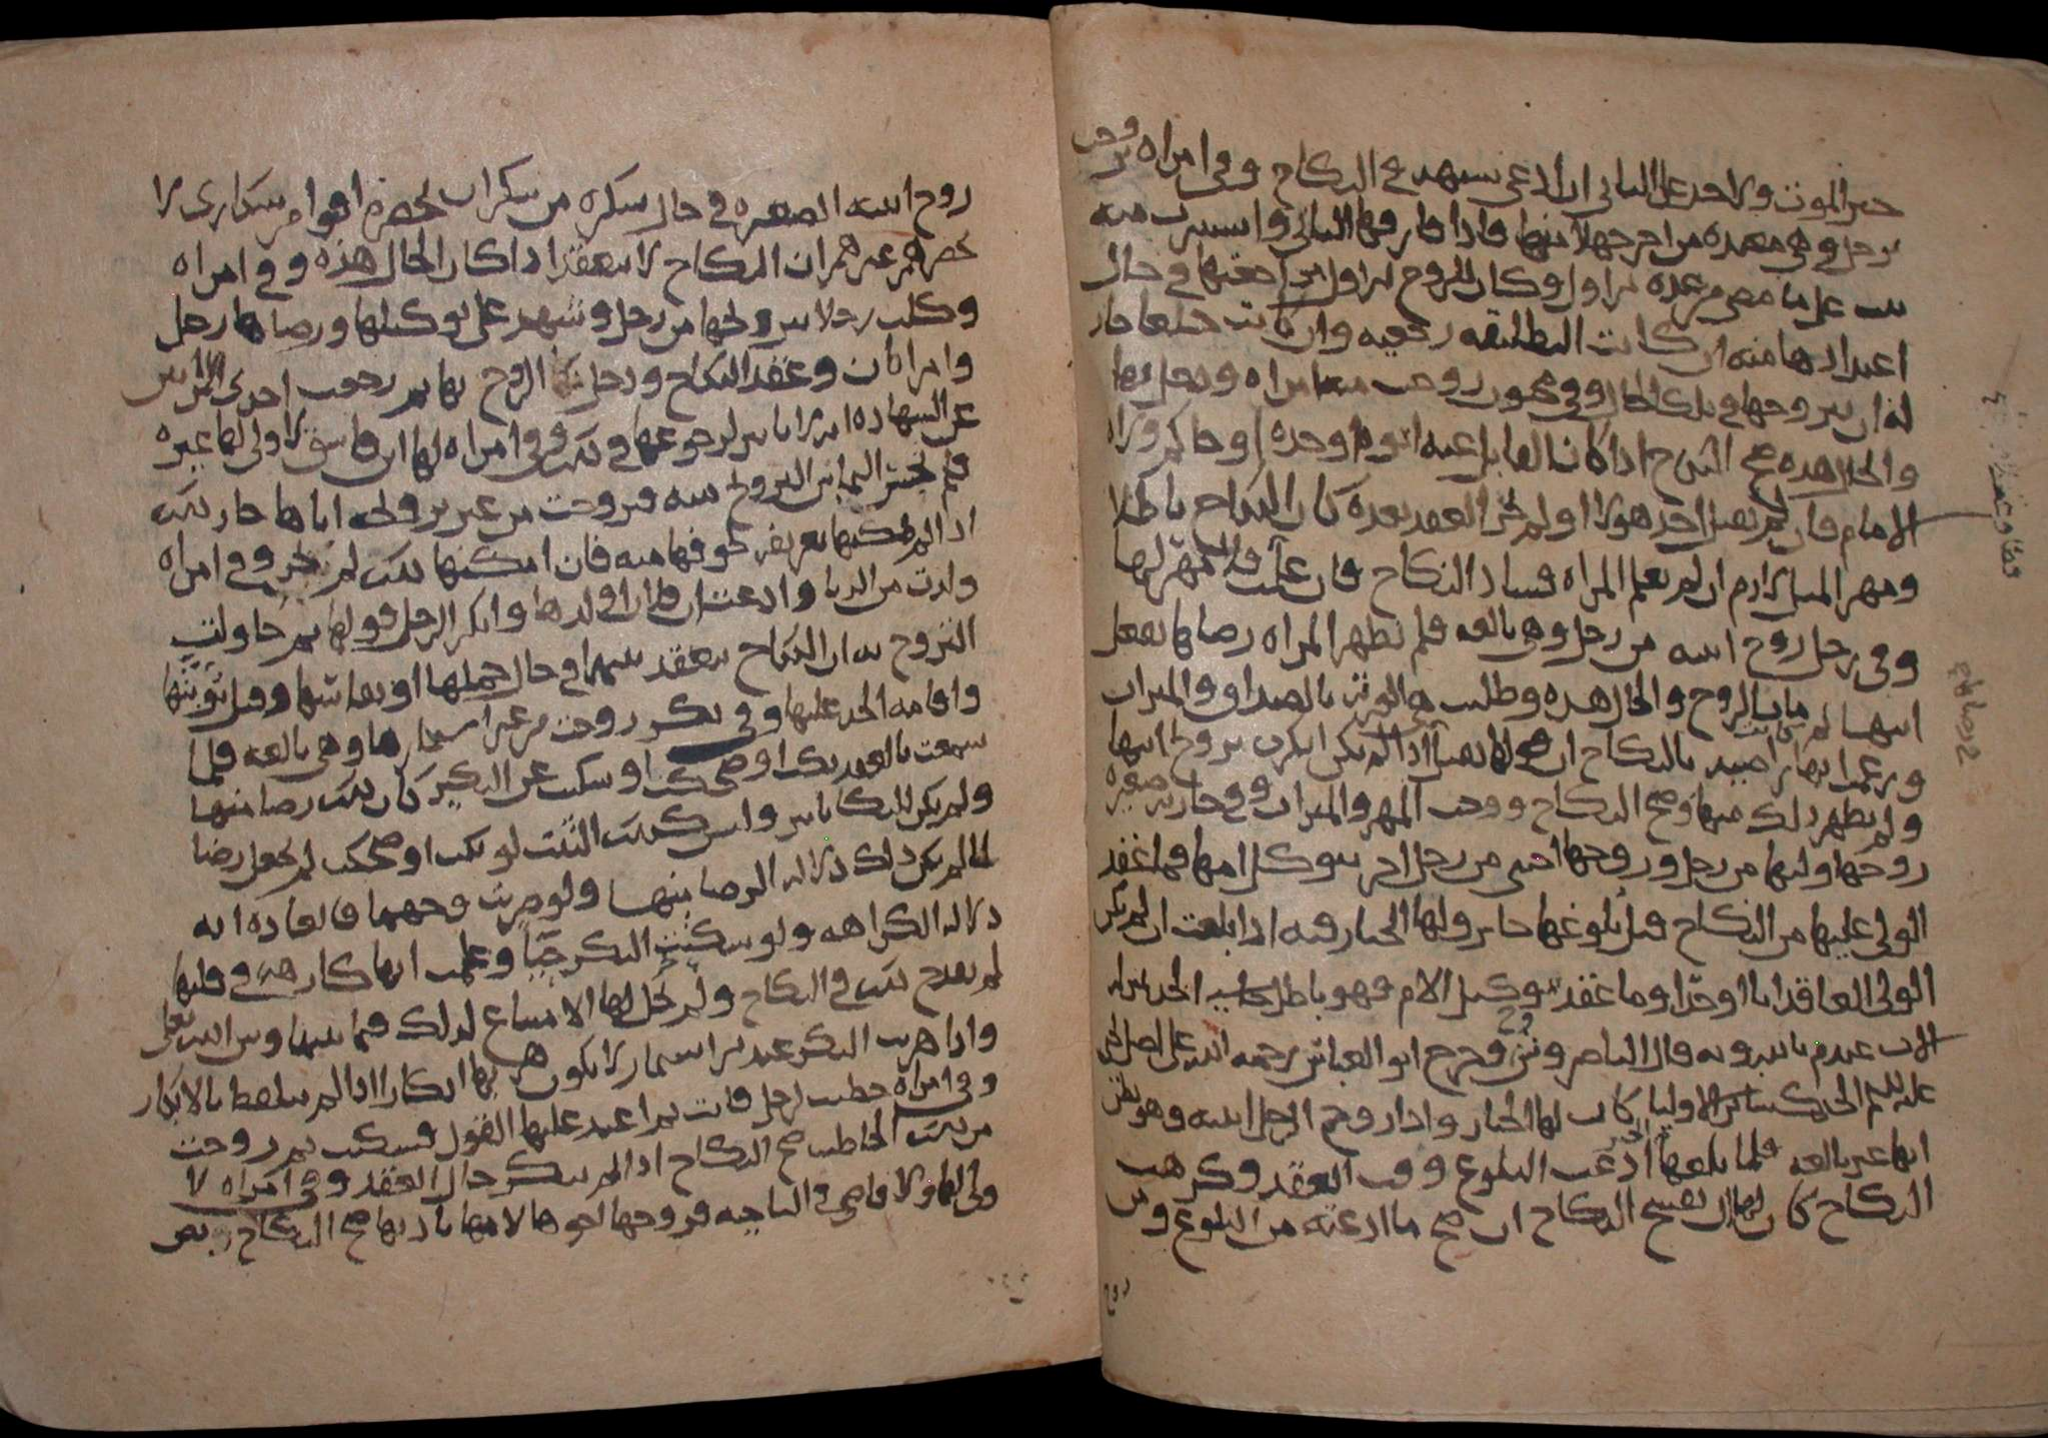 حين الموت ولا حد على الثاني ان ادعى شبهة في النكاح وفي امراة تزوجت
برجل وهي معتدة من اخر جهلا منها فاذا فارقها الثاني واستبرت منه
بنت على ما مضى من عدة الاول وكان للزوج الاول مراجعتها في حال
اعتدادها منه ان كانت التطليقة رجعية وان كانت خلعا جاز
له ان يتزوجها في تلك الحال وفي مجنون زوجت منه امراة ودخل بها
والحال هذه صح النكاح اذا كان القابل عنه ابوه او جده او حاكم ولاه
الامام فان لم يقبل احد هولا او لم يجز العقد بعده كان النكاح باطلا
ومهر المثل لازم ان لم تعلم المراة فساد النكاح فان علمت فلا مهر لها
وفي رجل زوج ابنته من رجل وهي بالغة فلم تظهر المراة رضاها بفعل
ابيها لم مات الزوج والحال هذه وطلبت هي الورثة بالصداق والميراث
وزعمت انها كانت راضية بالنكاح ان لها يقبل اذا لم تكن انكرت تزويج ابيها
ولم يظهر ذلك منها وصح النكاح ووجب المهر والميراث وفي جارية صغيرة
زوجها وليها من رجل وزوجها اجنبي من رجل اخر بتوكيل امها فما عقد
الولي عليها من النكاح قبل بلوغها جايز ولها الخيار فيه اذا بلغت ان لم يكن
الولي العاقد ابا او جدا وما عقد بتوكيل الام فهو باطل
الاب عندم باسره وبه قال الناصر و وخرج ابو العباس رحمه الله على اصل يحيى
عليه السلم الاوليا كان لها الخيار واذا زوج الرجل ابنته وهو يظن
انها غير بالغة فلما بلغها الخبر ادعت البلوغ وقت العقد وكرهت
النكاح كان لها ان تفسخ النكاح ان صح ما ادعته من البلوغ ومن
زوج
زوج ابنته الصغيرة في حال سكره من سكران بحضرة اقوام سكارى لا
يحضرهم غيرهم ان النكاح لا ينعقد اذا كان الحال هذه وفي امراة
وكلت رجلا يزوجها من رجل وشهد على توكيلها ورضاها رجل
وامراتان وعقد النكاح ودخل الزوج بها ثم رجعت احدى المراتين
عن الشهادة انه لا تاثير لرجوعها في ذلك وفي امراة لها ابن فاسق لا ولي لها غيره
فلم يحسن التماس التزويج منه فزوجت من غير تزويجه اياها جاز ذلك
اذا لم يمكنها تعريفه لخوفها منه فان امكنها ذلك لم يجز وفي امراة
ولدت من الزنا وادعت ان فلانا ولدها وانكر الرجل قولها ثم حاولت
التزوج به ان النكاح ينعقد بينهما في حال حملها او نفاسها وقبل توبتها
واقامة الحد عليها وفي بكر زوجت من غير استيمارها وهي بالغة فلما
سمعت بالعقد بكت او ضحكت او سكتت عن النكير كان ذلك رضا منها
ولم يكن للبكا تاثير وليس كذلك الثيب لو بكت او ضحكت لم يجعل رضا
لما لم يكن ذلك دلالة الرضا منها ولو ضربت وجهها فالعادة انه
دلالة الكراهة ولو سكتت البكر حيا وعلمت انها كارهة في قلبها
لم يقدح ذلك في النكاح ولم يحل لها الامتناع لذلك فيما بينها وبين الله تعلى
واذا هربت البكر عند الاستيمار لا يكون هربها انكارا اذا لم تتلفظ بالانكار
وفي امراة خطبت لرجل فابت ثم اعيد عليها القول فسكتت ثم زوجت
من ذلك الخاطب صح النكاح اذا لم تنكر حال العقد وفي امراة لا
ولي لها ولا قاضي في الناحية فزوجها اخوها لامها باذنها صح النكاح